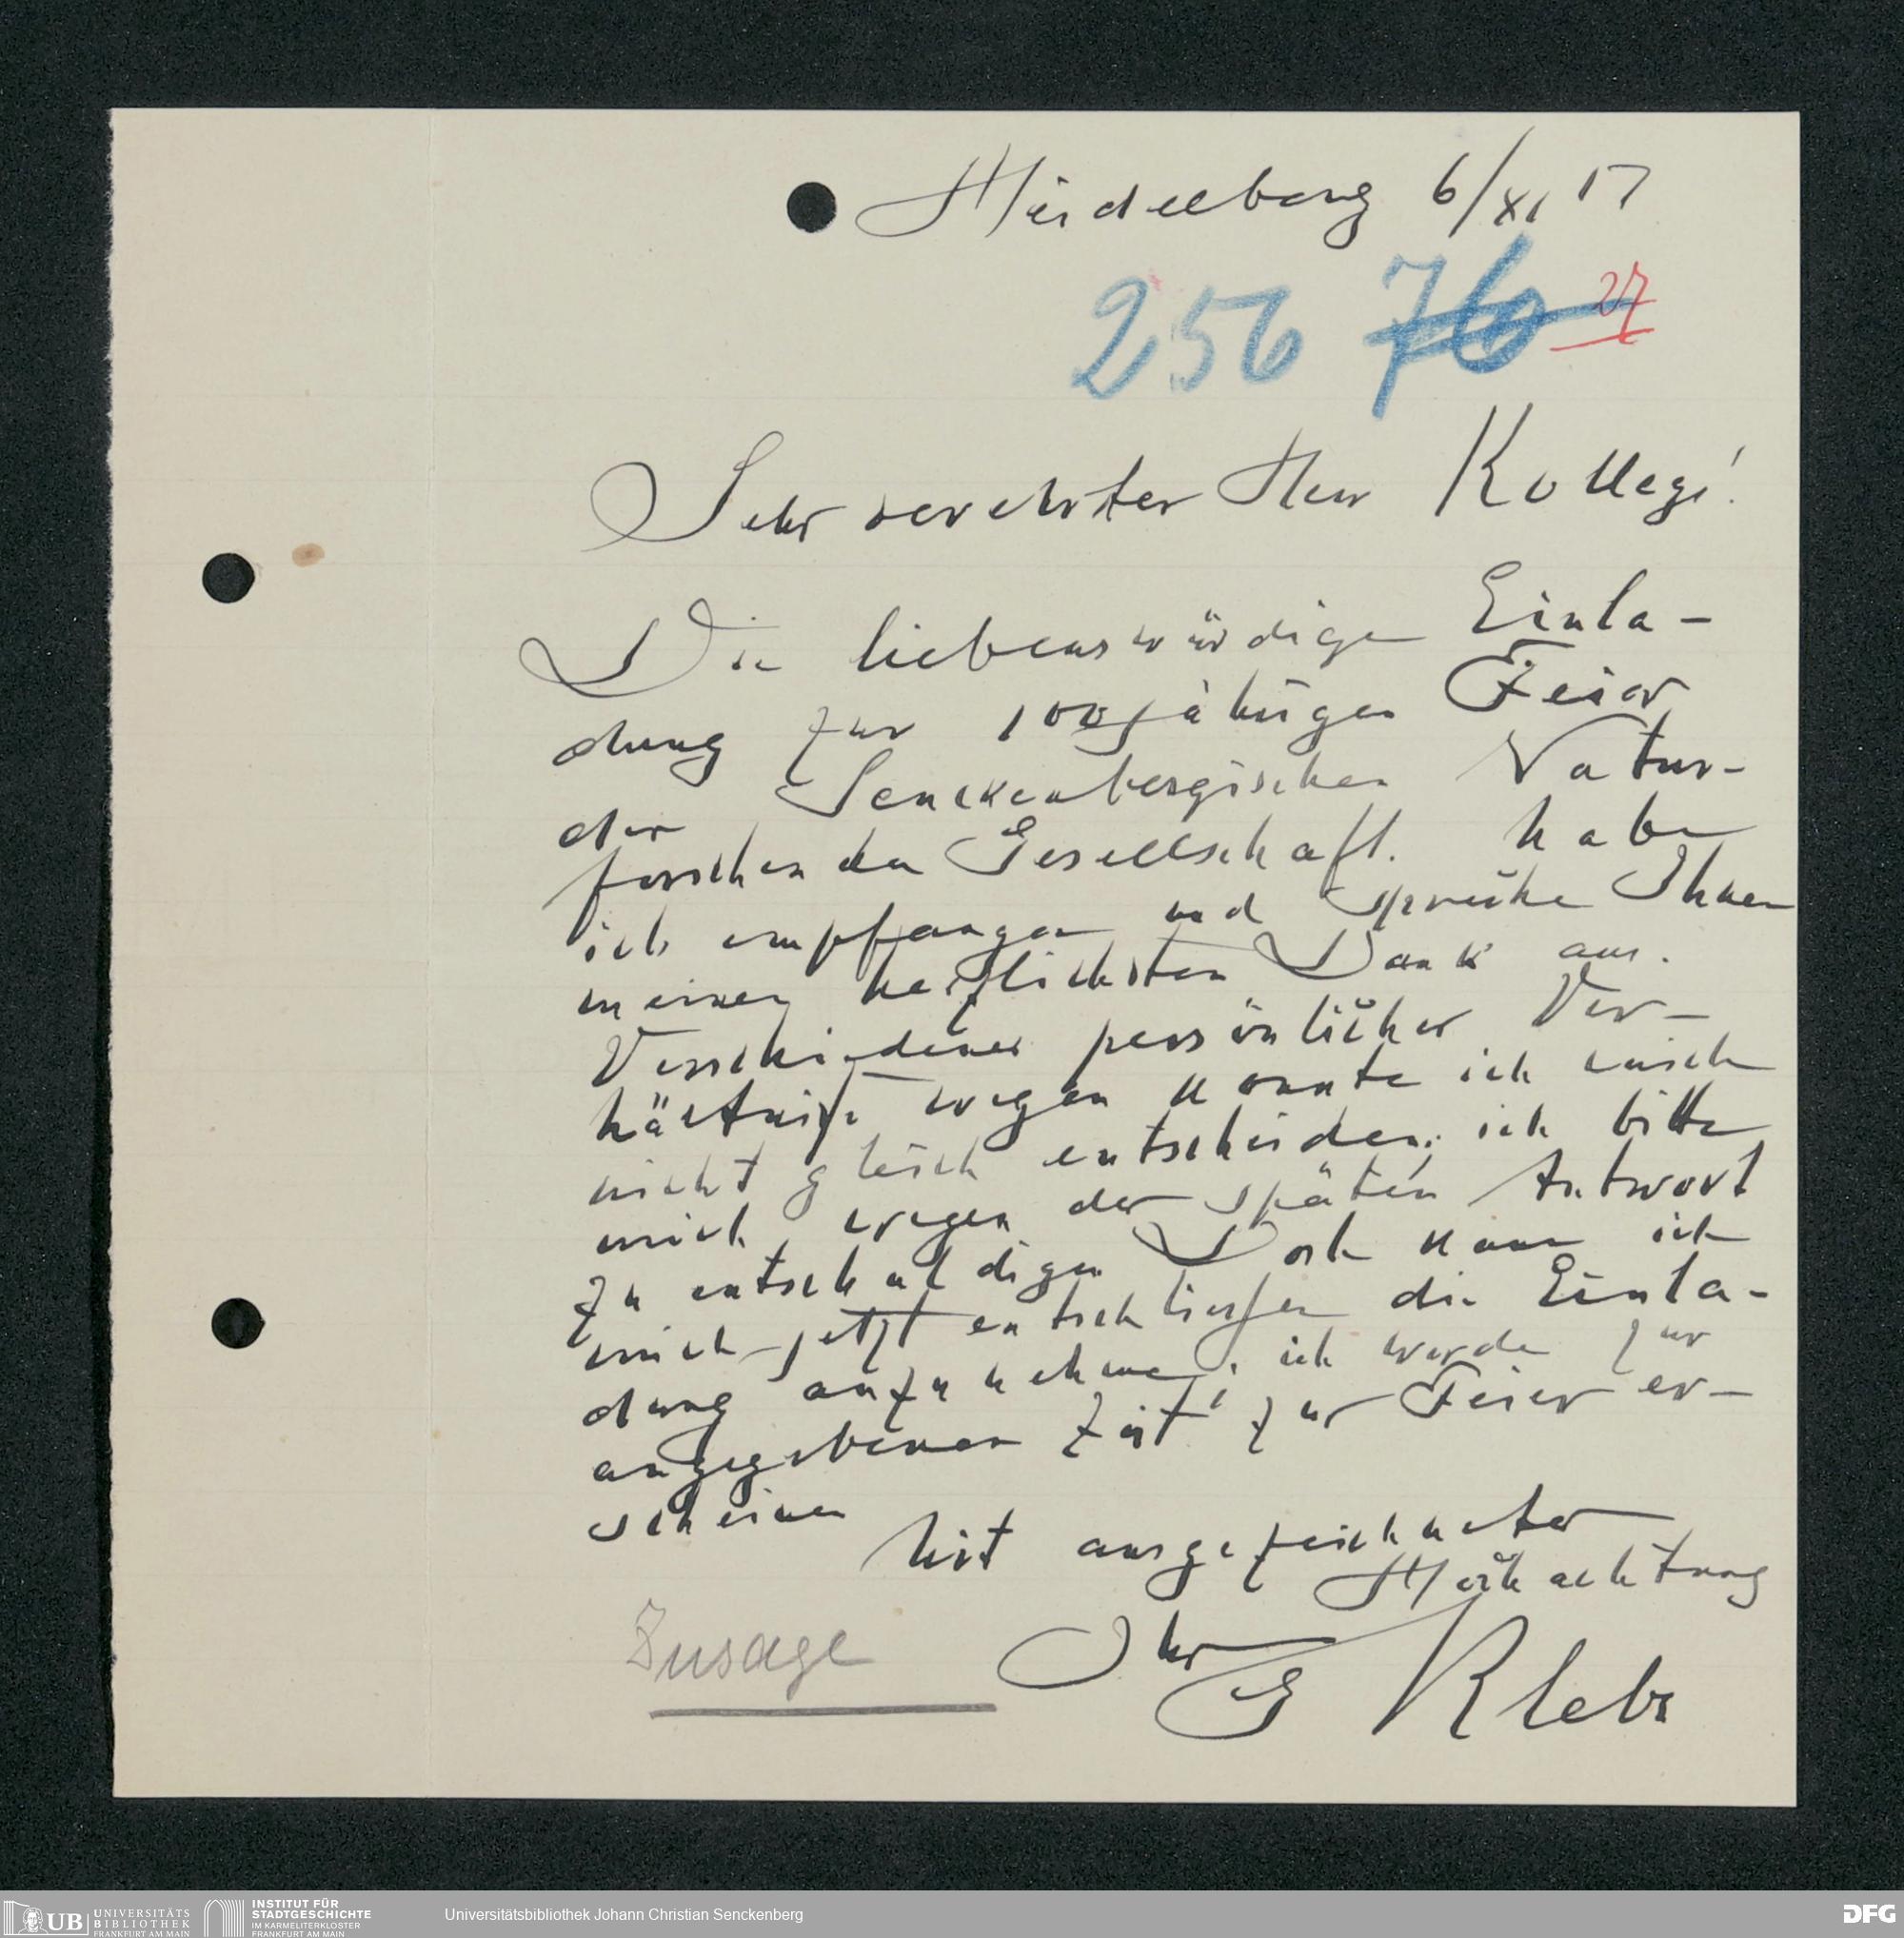 Heidelberg 6/XI 17
256 76 27
Sehr verehrter Herr Kollege!
Die liebenswürdige Einla-
dung zur 100jährigen Feier
der Senckenbergischen Natur-
forschenden Gesellschaft. habe
ich empfangen und spreche Ihnen
meinen herzlichsten Dank aus.
Verschiedener persönlicher Ver-
hältnisse wegen konnte ich mich
nicht gleich entscheiden; ich bitte
mich wegen der späten Antwort
zu entschuldigen Doch kann ich
mich jetzt entschliessen die Einla-
dung anzunehmen; ich werde zur
angegebenen Zeit zur Feier er-
scheinen
Mit ausgezeichneter
Hochachtung
Ihr
G Klebs
Zusage
UB UNIVERSITÄTS BIBLIOTHEK FRANKFURT AM MAIN
INSTITUT FÜR STADTGESCHICHTE IM KARMELITERKLOSTER FRANKFURT AM MAIN
Universitätsbibliothek Johann Christian Senckenberg
DFG